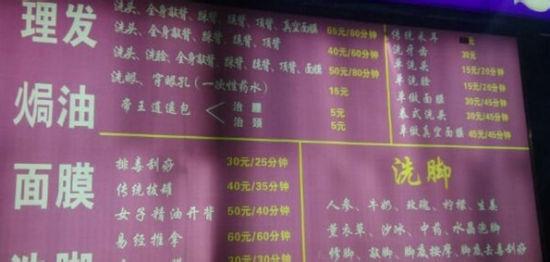 理发
洗头、全身敲背、踩背、顶背、真空面膜 65元/60分钟
洗头、全身敲背、踩背、顶背 40元/60分钟
洗头、洗脸、全身敲背、踩背、顶背、面膜 50元/80分钟
焗油
洗眼、穿眼孔（一次性药水） 15元
帝王逍遥包
治腰 5元
治颈 5元
面膜
排毒刮痧 30元/25分钟
传统拔罐 40元/35分钟
女子精油开背 50元/40分钟
易经推拿 60元/60分钟
30元/30分钟
传统采耳 元
洗牙齿 30元
单洗头 15元/20分钟
单洗脸 15元/20分钟
单做面膜 30元/45分钟
泰式洗头 30元/45分钟
单做真空面膜 45元/45分钟
洗脚
人参、牛奶、玫瑰、柠檬、生姜
薰衣草、沙冰、中药、水晶泡脚
修脚、敲脚、脚底按摩、脚底去毒刮痧